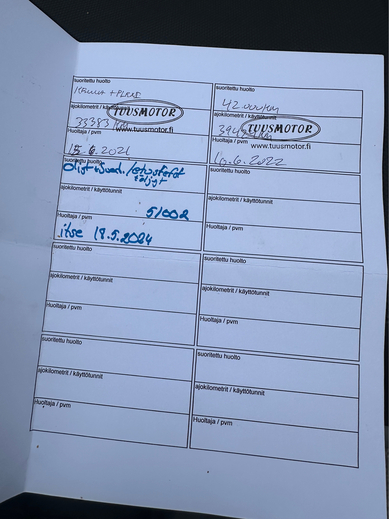 suoritettu huolto
+ PLKKS
ajokilometrit / käyttötunnit
33383 km
TUUSMOTOR
www.tuusmotor.fi
Huoltaja / pvm
15.6.2021
suoritettu huolto
42.000KM
ajokilometrit / käyttötunnit
TUUSMOTOR
www.tuusmotor.fi
Huoltaja / pvm
10.6.2022
suoritettu huolto
öljyt
ajokilometrit / käyttötunnit
51002
Huoltaja / pvm
itse 18.5.2024
suoritettu huolto
ajokilometrit / käyttötunnit
Huoltaja / pvm
suoritettu huolto
ajokilometrit / käyttötunnit
Huoltaja / pvm
suoritettu huolto
ajokilometrit / käyttötunnit
Huoltaja / pvm
suoritettu huolto
ajokilometrit / käyttötunnit
Huoltaja / pvm
suoritettu huolto
ajokilometrit / käyttötunnit
Huoltaja / pvm